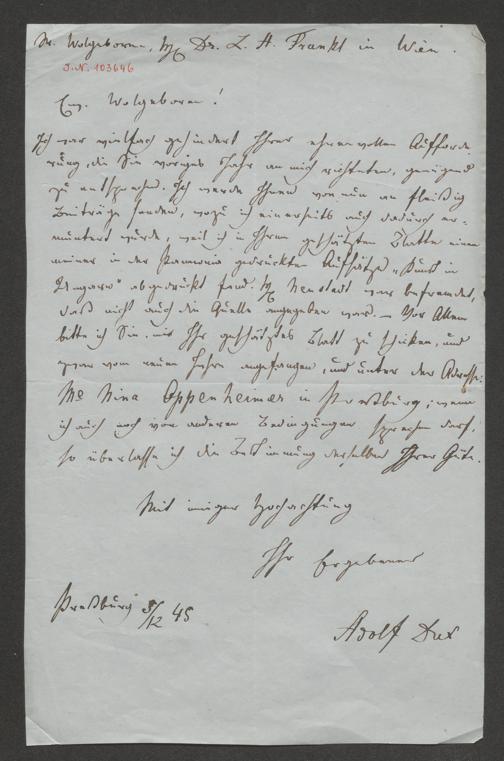 Sr. Wolgeboren, H. Dr. L. A. Frankl in Wien.
J.N. 103646
Eur. Wolgeboren!
Ich war vielfach gehindert Ihrer ehrenvollen Aufforde-
rung, die Sie voriges Jahr an mich richteten, genügend
zu entsprechen. Ich werde Ihnen von nun an fleißig
Beiträge senden, wozu ich einerseits auch dadurch er-
muntert wurde, weil ich in Ihrem geschätzten Blatte einen
meiner in der Pannonia gedruckten Aufsätze „Kunst in
Ungarn“ abgedruckt fand. H. Neustadt war befremdet,
daß nicht auch die Quelle angegeben war. – Vor Allem
bitte ich Sie, mir Ihr geschätztes Blatt zu schicken, und
zwar vom neuen Jahre angefangen, und unter der Adresse:
Me Nina Oppenheimer in Preßburg; wenn
ich auch noch von anderen Bedingungen sprechen darf,
so überlasse ich die Bestimmung derselben Ihrer Güte.
Mit inniger Hochachtung
Ihr Ergebener
Preßburg 3/12 45
Adolf Dux